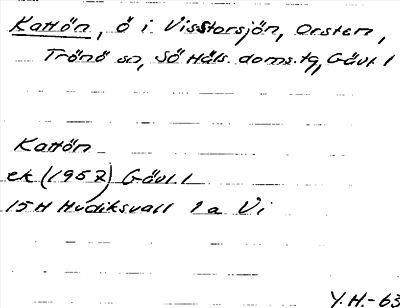 Kattön, ö i Visstorsjön, Orsten,
Trönö sn, Sö Häls. doms.tg, Gävl. l
Kattön
ek (1957) Gävl. l
15H Hudiksvall 1 a Vi
Y.H.-63